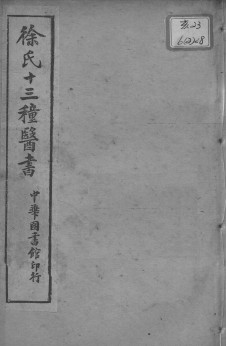 徐氏十三種醫書
中華圖書館印行